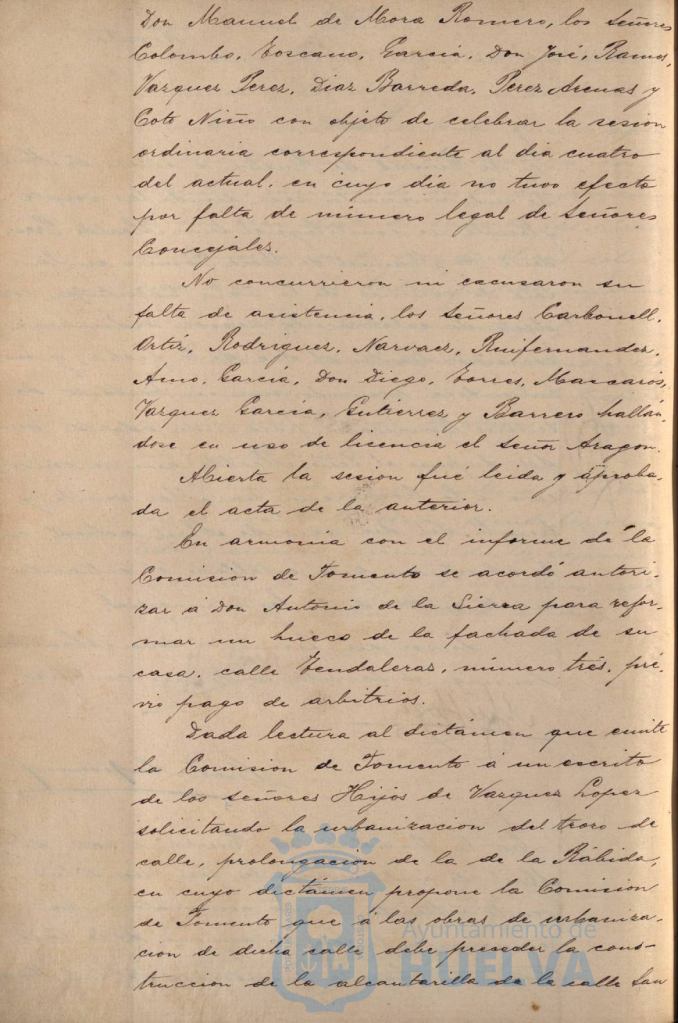 Don Manuel de Mora Romero, los Señores
Colombo, Toscano, Garcia, Don José, Ramos,
Vazquez Perez, Diaz Barreda, Perez Arenas y
Coto Niño con objeto de celebrar la sesion
ordinaria correspondiente al dia cuatro
del actual, en cuyo dia no tuvo efecto
por falta de número legal de Señores
Concejales.
No concurrieron ni escusaron su
falta de asistencia, los Señores Carbonell,
Ortiz, Rodriguez, Narvaez, Ruifernandez,
Amo, García, Don Diego, Torres, Mascarós,
Vazquez García, Gutierrez y Barrero hallán-
dose en uso de licencia el Señor Aragon.
Abierta la sesion fué leida y aproba-
da el acta de la anterior.
En armonia con el informe de la
Comision de Fomento se acordó autori-
zar á Don Antonio de la Sierra para refor-
mar un hueco de la fachada de su
casa, calle Tendaleras, número trés, pré-
vio pago de arbitrios.
Dada lectura al dictámen que emite
la Comision de Fomento á un escrito
de los Señores Hijos de Vazquez Lopez
solicitando la urbanizacion del trozo de
calle, prolongacion de la de la Rábida,
en cuyo dictámen propone la Comision
de Fomento que á las obras de urbaniza-
cion de dicha calle debe preceder la cons-
truccion de la alcantarilla de la calle San
Ayuntamiento de
HUELVA